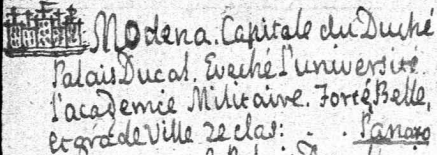 Modena. Capitale du Duché
Palais Ducal. Eveché l'université
l'academie Militaire. Forté Belle,
et grāde ville 2e clas: . . Panaro